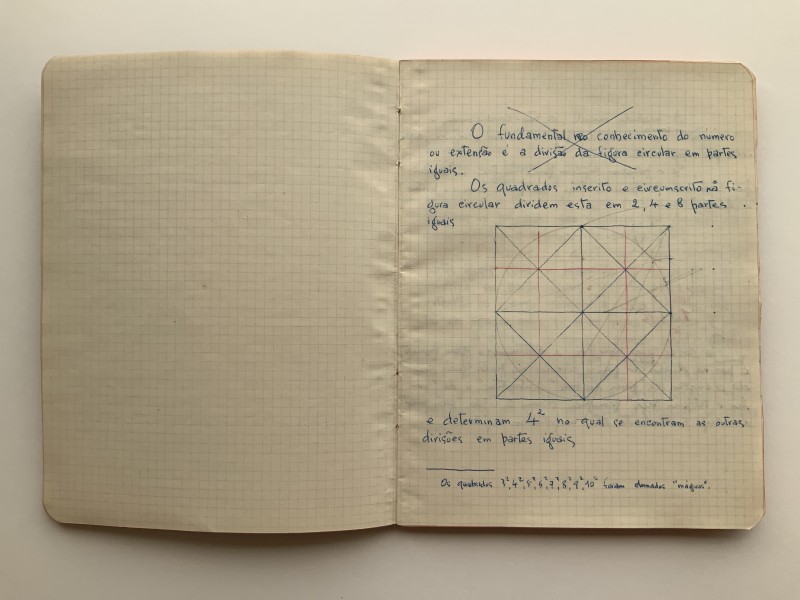 O fundamental no conhecimento do número
ou extensão é a divisão da figura circular em partes
iguais.
Os quadrados inscrito e circumscrito na fi-
gura circular dividem esta em 2, 4 e 8 partes
iguais
e determinam 4² no qual se encontram as outras
divisões em partes iguais
Os quadrados 3², 4², 5², 6², 7², 8², 9², 10² foram chamados "mágicos".